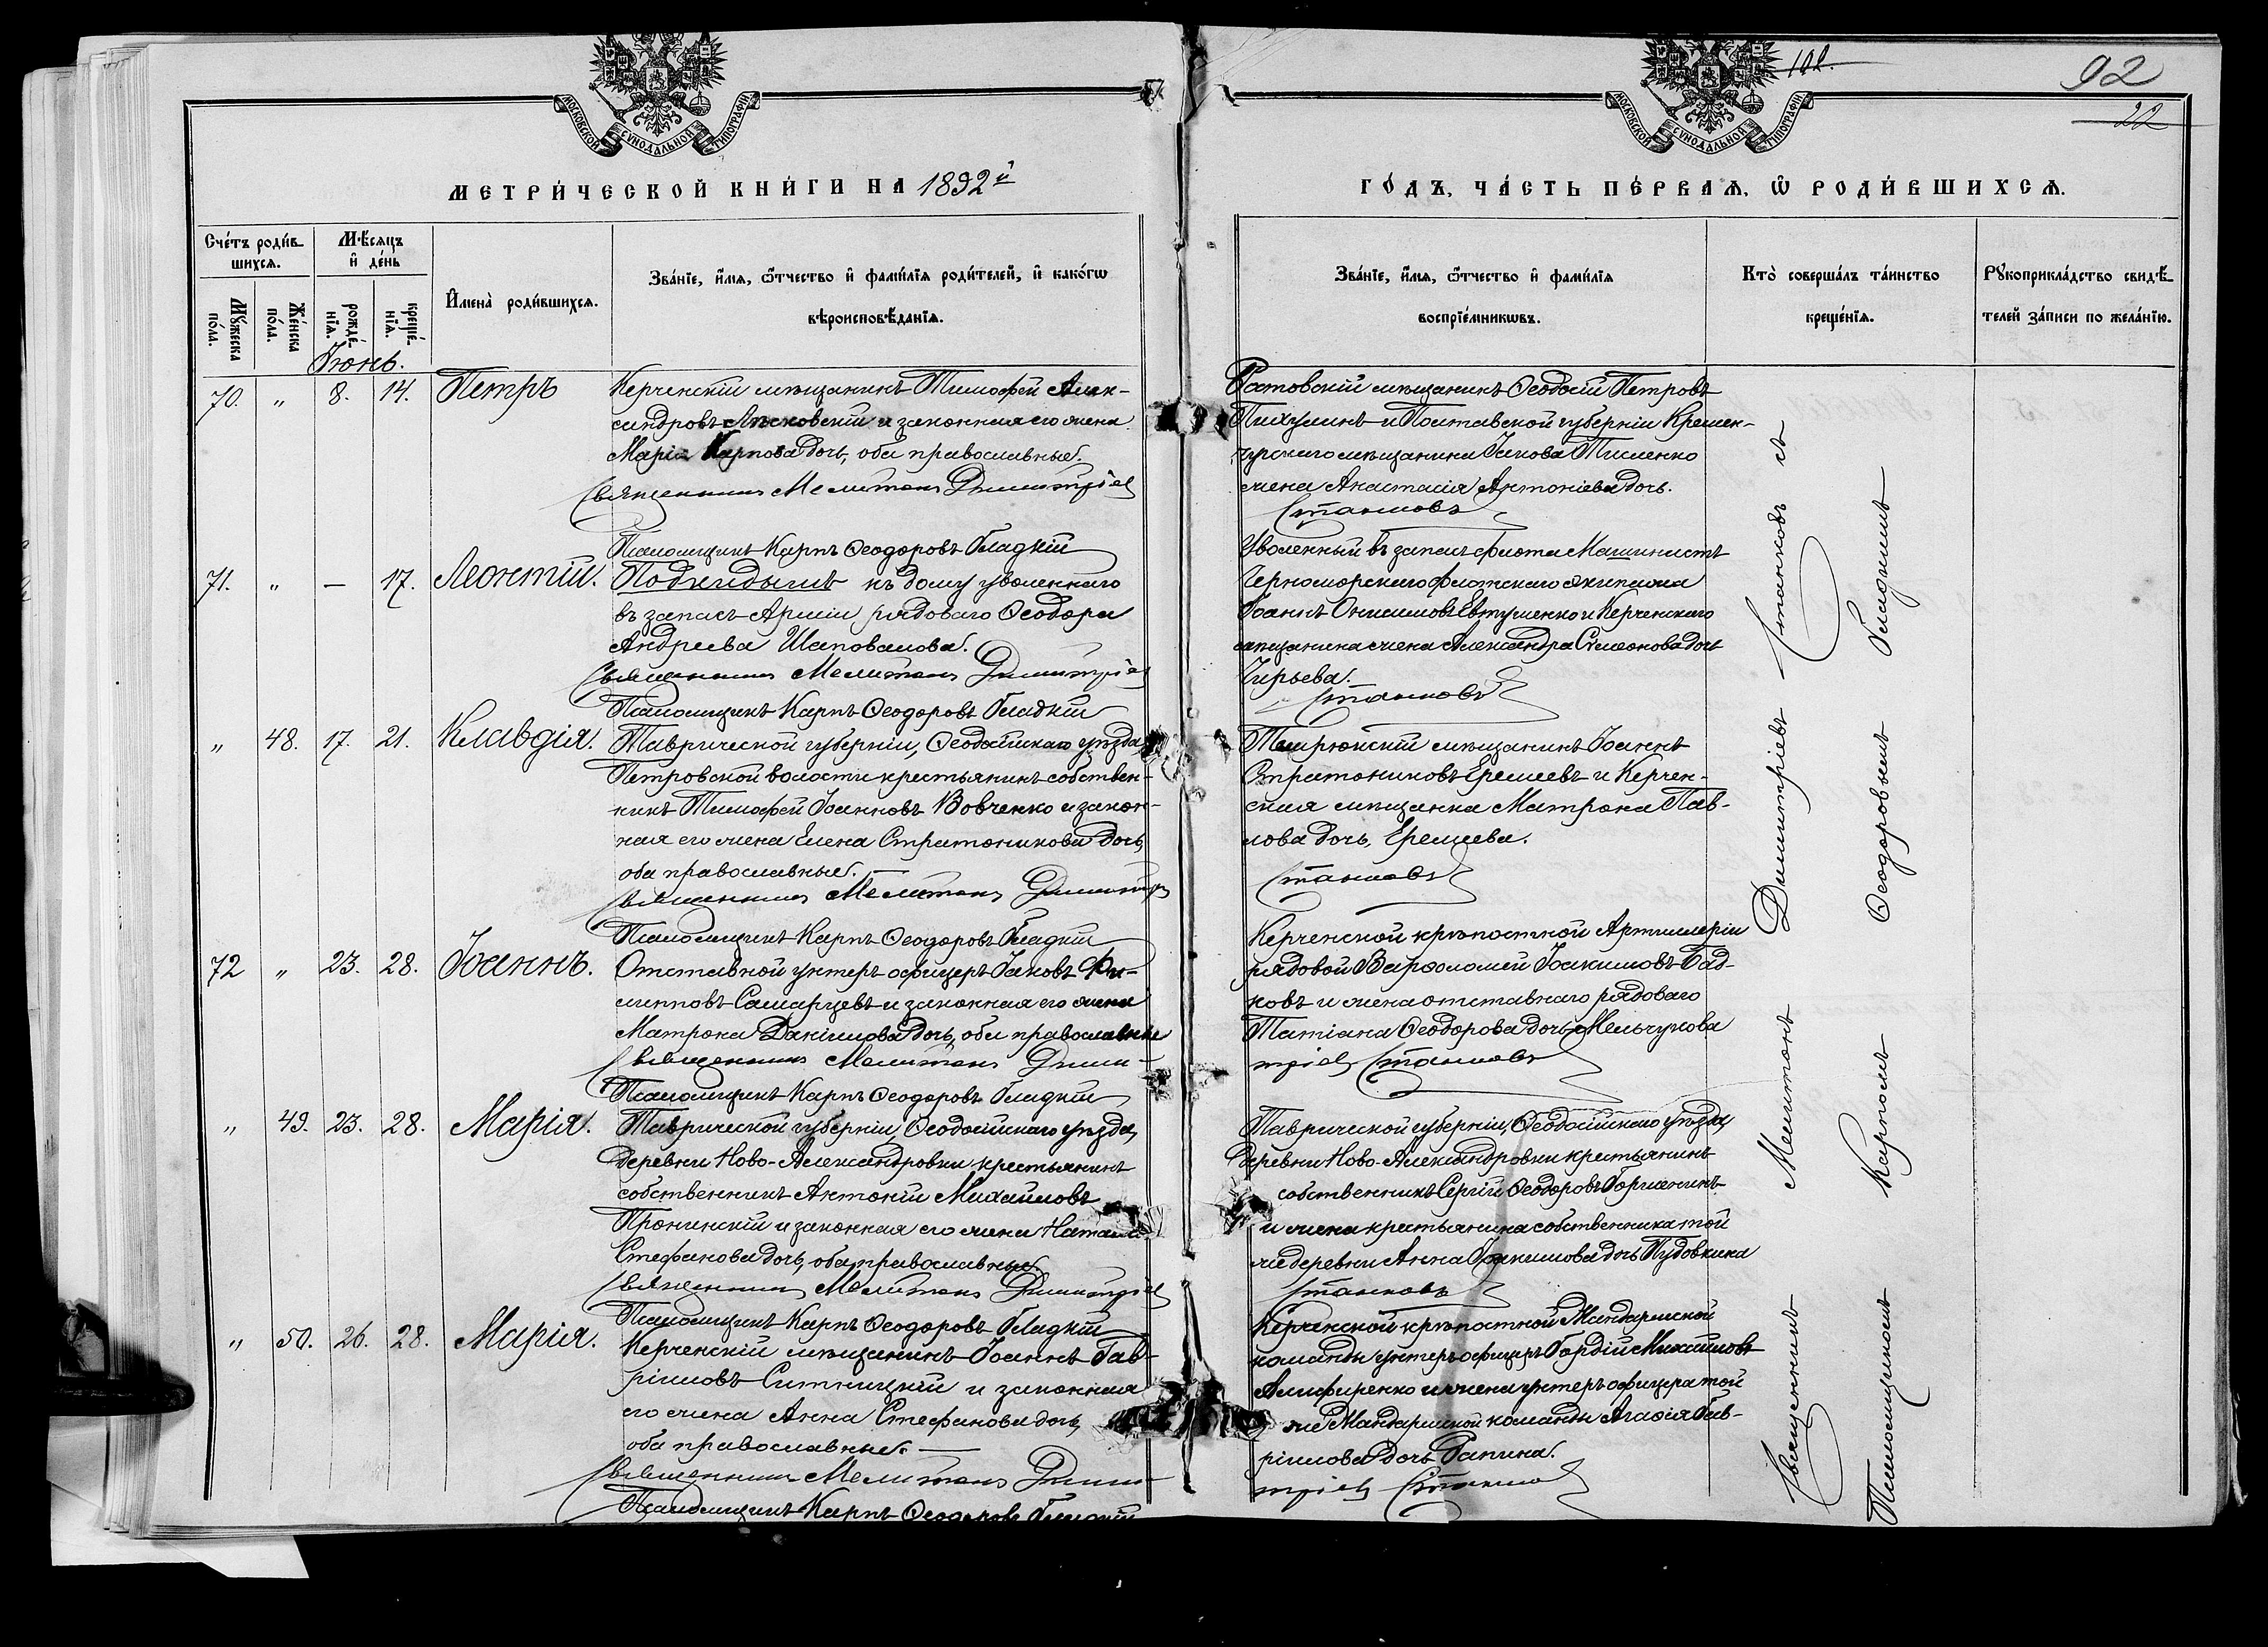 МОСКОВСКОЙ СѴНОДАЛЬНОЙ ТИПОГРАФІИ
МЕТРИ́ЧЕСКОЙ КНИ́ГИ НА 1892й
Сче́тъ роди́в-
шихся.
Мѣ́сяцъ
и҆ де́нь
Мꙋ́жеска
по́ла.
Же́нска
по́ла.
рожде́-
нїя.
креще́-
нїя.
И҆мена̀ роди́вшихся.
Зва́нїе, и҆́мя, ѻ҆́тчество и҆ фами́лїя роди́телей, и҆ како́гѡ
вѣроисповѣ́данїя.
Іюнь.
70. " 8. 14. Петръ
Керченскій мѣщанинъ Тимофей Алек-
сандровъ Лѣсковскій и законная его жена
Марія Карпова дочь, оба православные.
Священникъ Мелитонъ Димитріев
Псаломщикъ Карпъ Ѳеодоровъ Гладкій
71. " — 17. Леонтій.
Подкидышъ къ дому уволеннаго
въ запасъ Арміи рядоваго Ѳеодора
Андреева Шаповалова.
Священникъ Мелитонъ Димитріев
Псаломщикъ Карпъ Ѳеодоровъ Гладкій
" 48. 17. 21. Клавдія.
Таврической губерніи, Ѳеодосійскаго уѣзда
Петровской волости крестьянинъ собствен-
никъ Тимофей Іоанновъ Вовченко и закон-
ная его жена Елена Стратоникова дочь,
оба православные.
Священникъ Мелитонъ Димитр
Псаломщикъ Карпъ Ѳеодоровъ Гладкій
72 " 23. 28. Іоаннъ.
Отставной унтеръ офицеръ Іаковъ Фи-
липповъ Самарцевъ и законная его жена
Матрона Даніилова дочь, оба православные
Священникъ Мелитонъ Дими-
Псаломщикъ Карпъ Ѳеодоровъ Гладкій
" 49. 23. 28. Марія.
Таврической губерніи, Ѳеодосійскаго уѣзда,
деревни Ново-Александровки крестьянинъ
собственникъ Антоній Михаиловъ
Пронинскій и законная его жена Наталія
Стефанова дочь, оба православные.
Священникъ Мелитонъ Димитріев
Псаломщикъ Карпъ Ѳеодоровъ Гладкій
" 50. 26. 28. Марія.
Керченскій мѣщанинъ Іоаннъ Гав-
ріиловъ Ситницкій и законная
его жена Анна Стефанова дочь,
оба православные.
Священникъ Мелитонъ Дими
Псаломщикъ Карпъ Ѳеодоровъ Гладкій
МОСКОВСКОЙ СѴНОДАЛЬНОЙ ТИПОГРАФІИ
92
22
ГО́ДЪ, ЧА́СТЬ ПЕ́РВАЯ, Ѡ҆ РОДИ́ВШИХСЯ.
Зва́нїе, и҆́мя, ѻ҆́тчество и҆ фами́лїя
воспрїе́мникѡвъ.
Кто̀ соверша́лъ та́инство
креще́нїя.
Рꙋкоприкла́дство свидѣ́-
телей за́писи по жела́нїю.
Ростовскій мѣщанинъ Ѳеодосій Петровъ
Пихулинъ и Полтавской губерніи Кремен-
чугскаго мѣщанина Іакова Тисленко
жена Анастасія Антоніева дочь.
Станковъ
Уволенный въ запасъ флота Машинистъ
Черноморскаго флотскаго экипажа
Іоаннъ Онисимовъ Евтушенко и Керченскаго
мѣщанина жена Александра Сѵмеонова дочь
Чирьева.
Станковъ
Темрюкскій мѣщанинъ Іоаннъ
Стратониковъ Еремеевъ и Керчен-
ская мѣщанка Матрона Пав-
лова дочь, Еремеева.
Станковъ
Керченской крѣпостной Артиллеріи
рядовой Варѳоломей Іоакимовъ Бад-
ковъ и жена отставнаго рядоваго
Татіана Ѳеодорова дочь Мельчукова
тріев Станковъ
Таврической губерніи, Ѳеодосійскаго уѣзда
деревни Ново-Александровки крестьянинъ
собственникъ Сергій Ѳеодоровъ Горжанинъ
и жена крестьянина собственника той
же деревни Анна Іоакимова дочь Пудовкина
Станковъ
Керченской крѣпостной Жандармской
команды унтеръ офицеръ Гордій Михаиловъ
Алифиренко и жена унтеръ офицера той
же Жандармской команды Агаѳія Гав-
ріилова дочь Рапина.
тріев Станков
Священникъ Мелитонъ Димитріевъ Станковъ съ
Псаломщикомъ Карпомъ Ѳеодоровымъ Гладкимъ